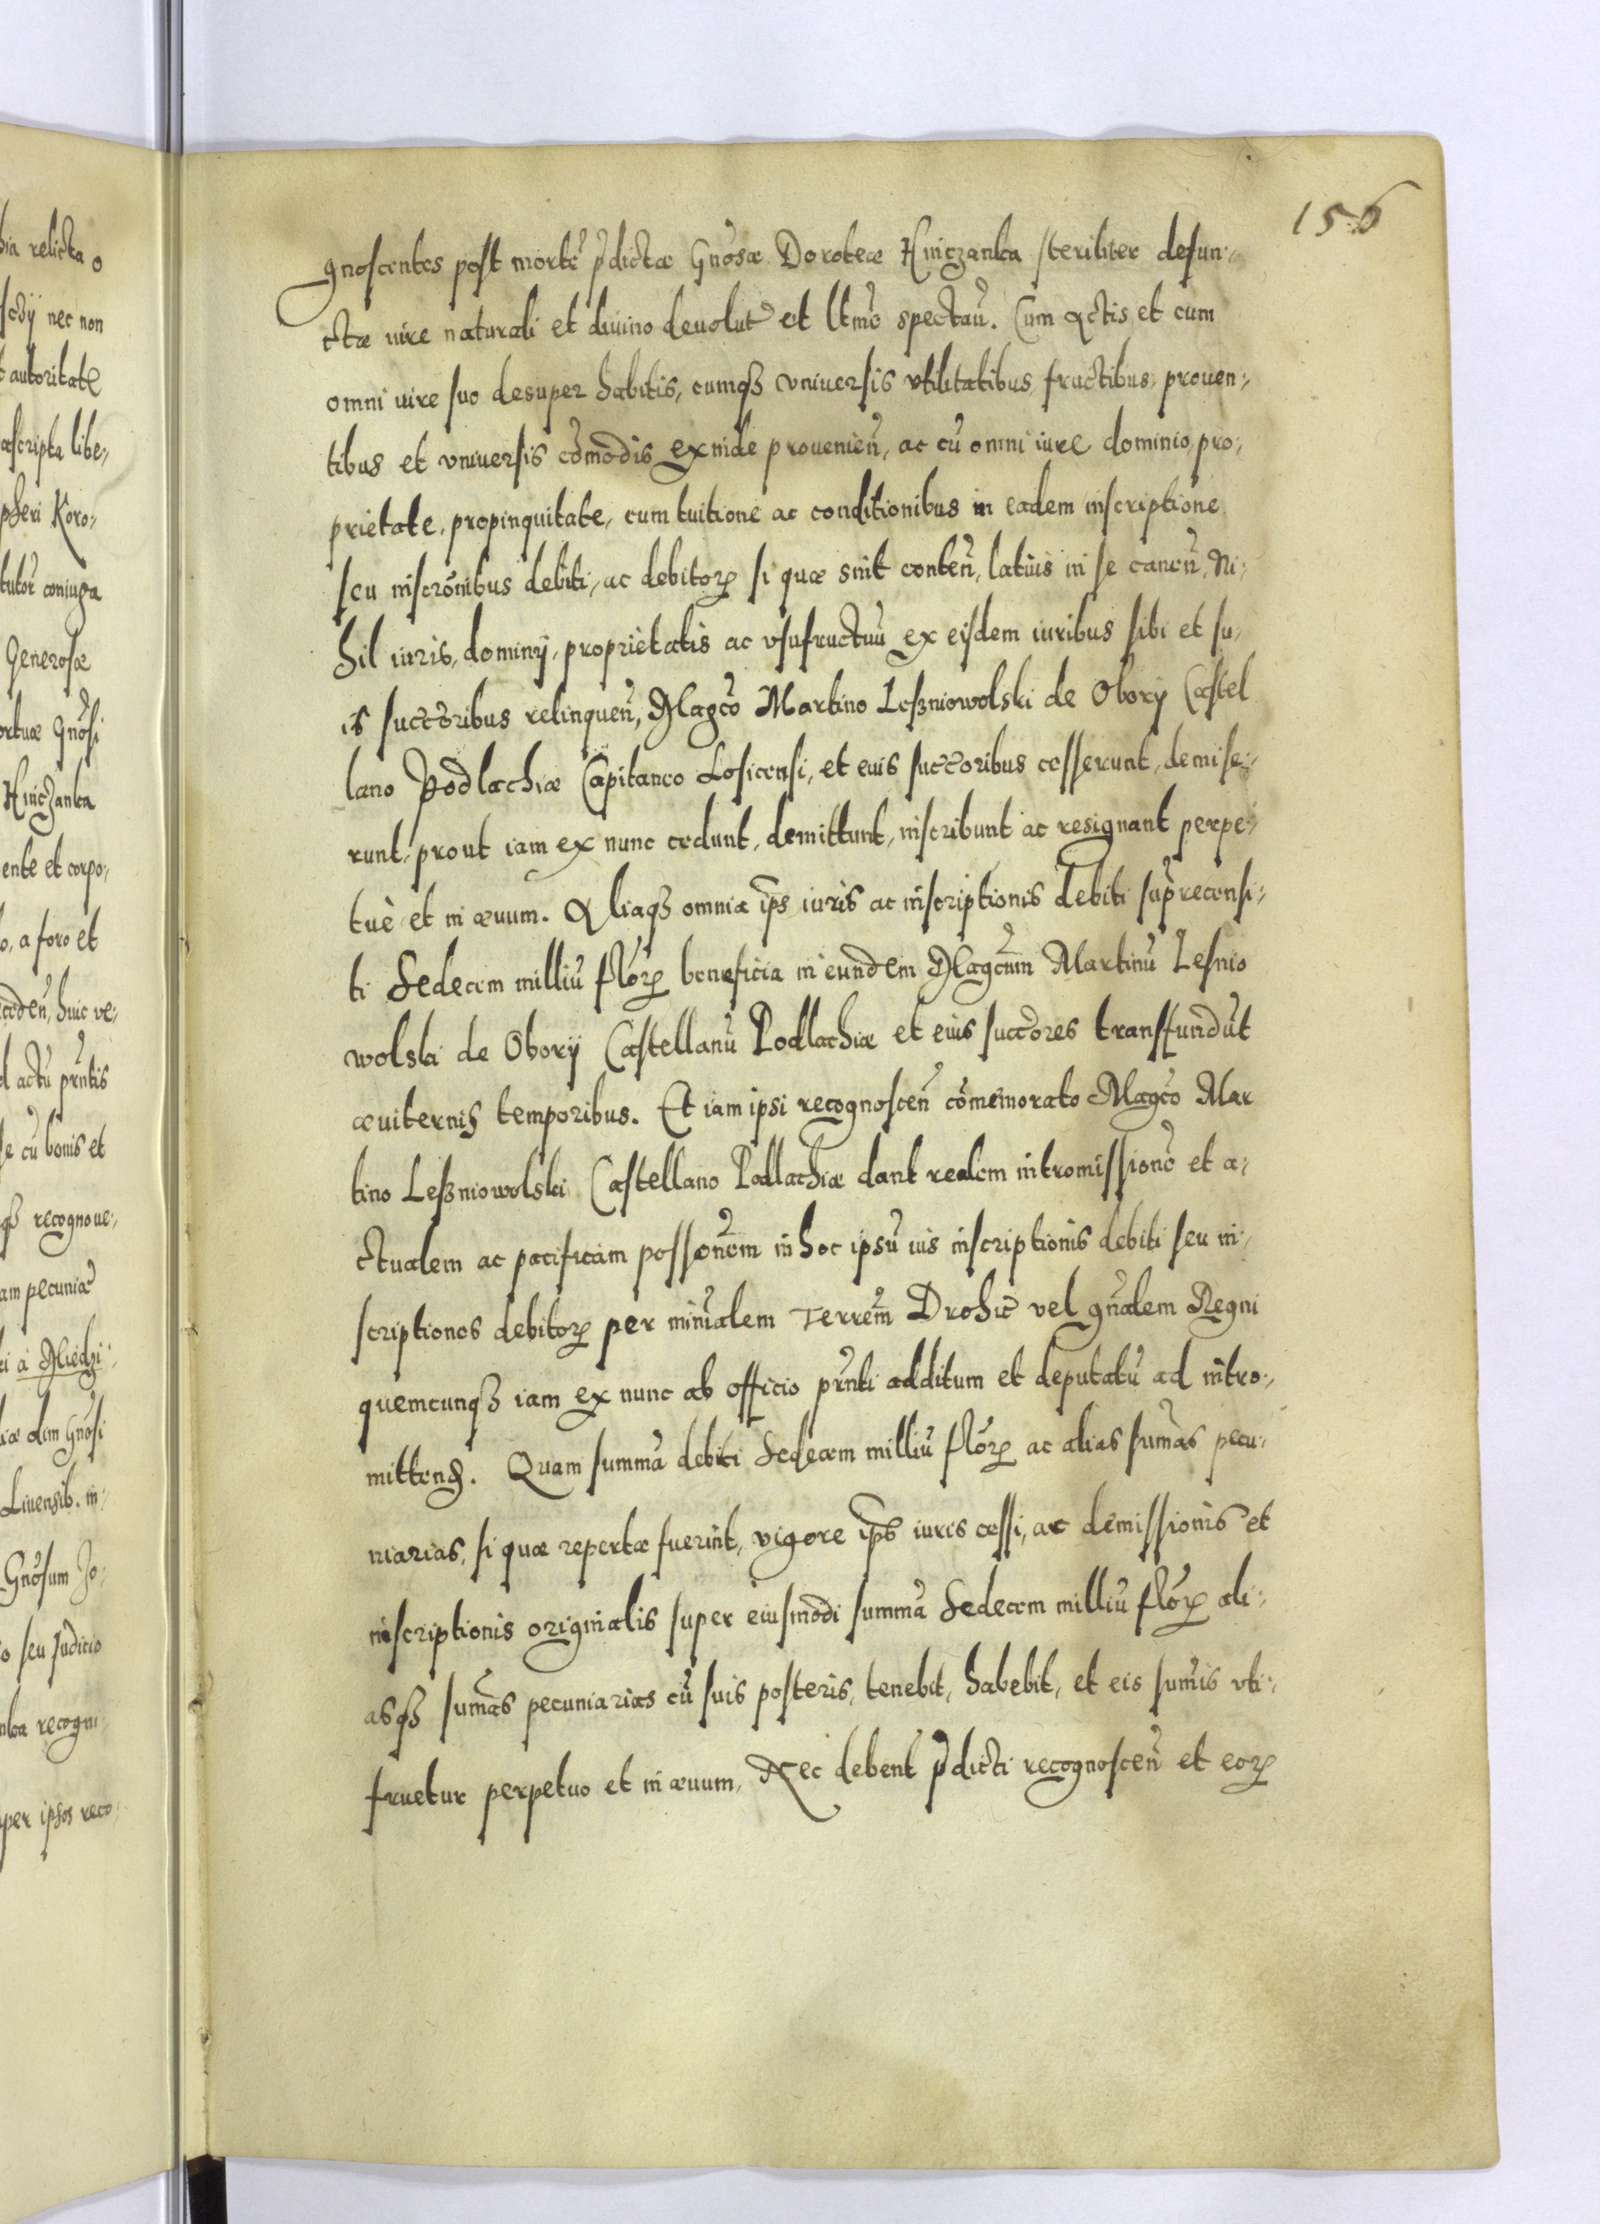 156
gnoscentes post mortē p̄dictæ Gnōsæ Doroteæ Hinczanka steriliter defun:
ctæ iure naturali et diuino deuolut̄ et ltmē spectan̄. Cum actis et cum
omni iure suo desuper habitis, cumqȝ vniuersis vtilitatibus fructibus, prouen:
tibus et vniuersis cōmodis exinde prouenien̄, ac cū omni iure dominio, pro:
prietate, propinquitate, cum tuitione ac conditionibus in eadem inscriptione
seu inscrōnibus debiti, ac debitorꝝ si quæ sint conten̄, latius in se canen̄, Ni:
hil iuris, dominij, proprietatis ac vsufructuū ex eisdem iuribus sibi et su:
is succoribus relinquen̄, Magco Martino Leszniowolski de Obory Castel
lano Podlachiæ Capitaneo Losicensi, et euis succoribus cesserunt, demise:
runt, prout iam ex nunc cedunt, demittunt, inscribunt ac resignant perpe:
tuè et in æuum. Aliaqȝ omnia ips̄ iuris ac inscriptionis debiti sup̄recensi:
ti Sedecem milliū flōrꝝ beneficia in eundem Magcum Martinū Lesnio
wolski de Obory Castellanū Podlachiæ et eius succores transfundūt
æuiternis temporibus. Et iam ipsi recognoscen̄ cōmemorato Magco Mar
tino Leszniowolski Castellano Podlachiæ dant realem intromissionē et a:
ctualem ac pacificam possōnem in hoc ipsū ius inscriptionis debiti seu in:
scriptiones debitorꝝ per minālem Terrem̄ Drohic̄ vel gnālem Regni
quemcunqȝ iam ex nunc ab officio pr̄nti additum et deputatū ad intro:
mittend. Quam summā debiti Sedecem milliū flōrꝝ ac alias sumās pecu:
niarias, si quæ repertæ fuerint, vigore ips̄ iuris cessi, ac demissionis et
inscriptionis originalis super eiusmodi summā Sedecem milliū flōrꝝ ali:
asqȝ sumās pecuniarias cū suis posteris, tenebit, habebit, et eis sumīs vti:
fruetur perpetuo et in æuum, Nec debent p̄dicti recognoscen̄ et eorꝝ